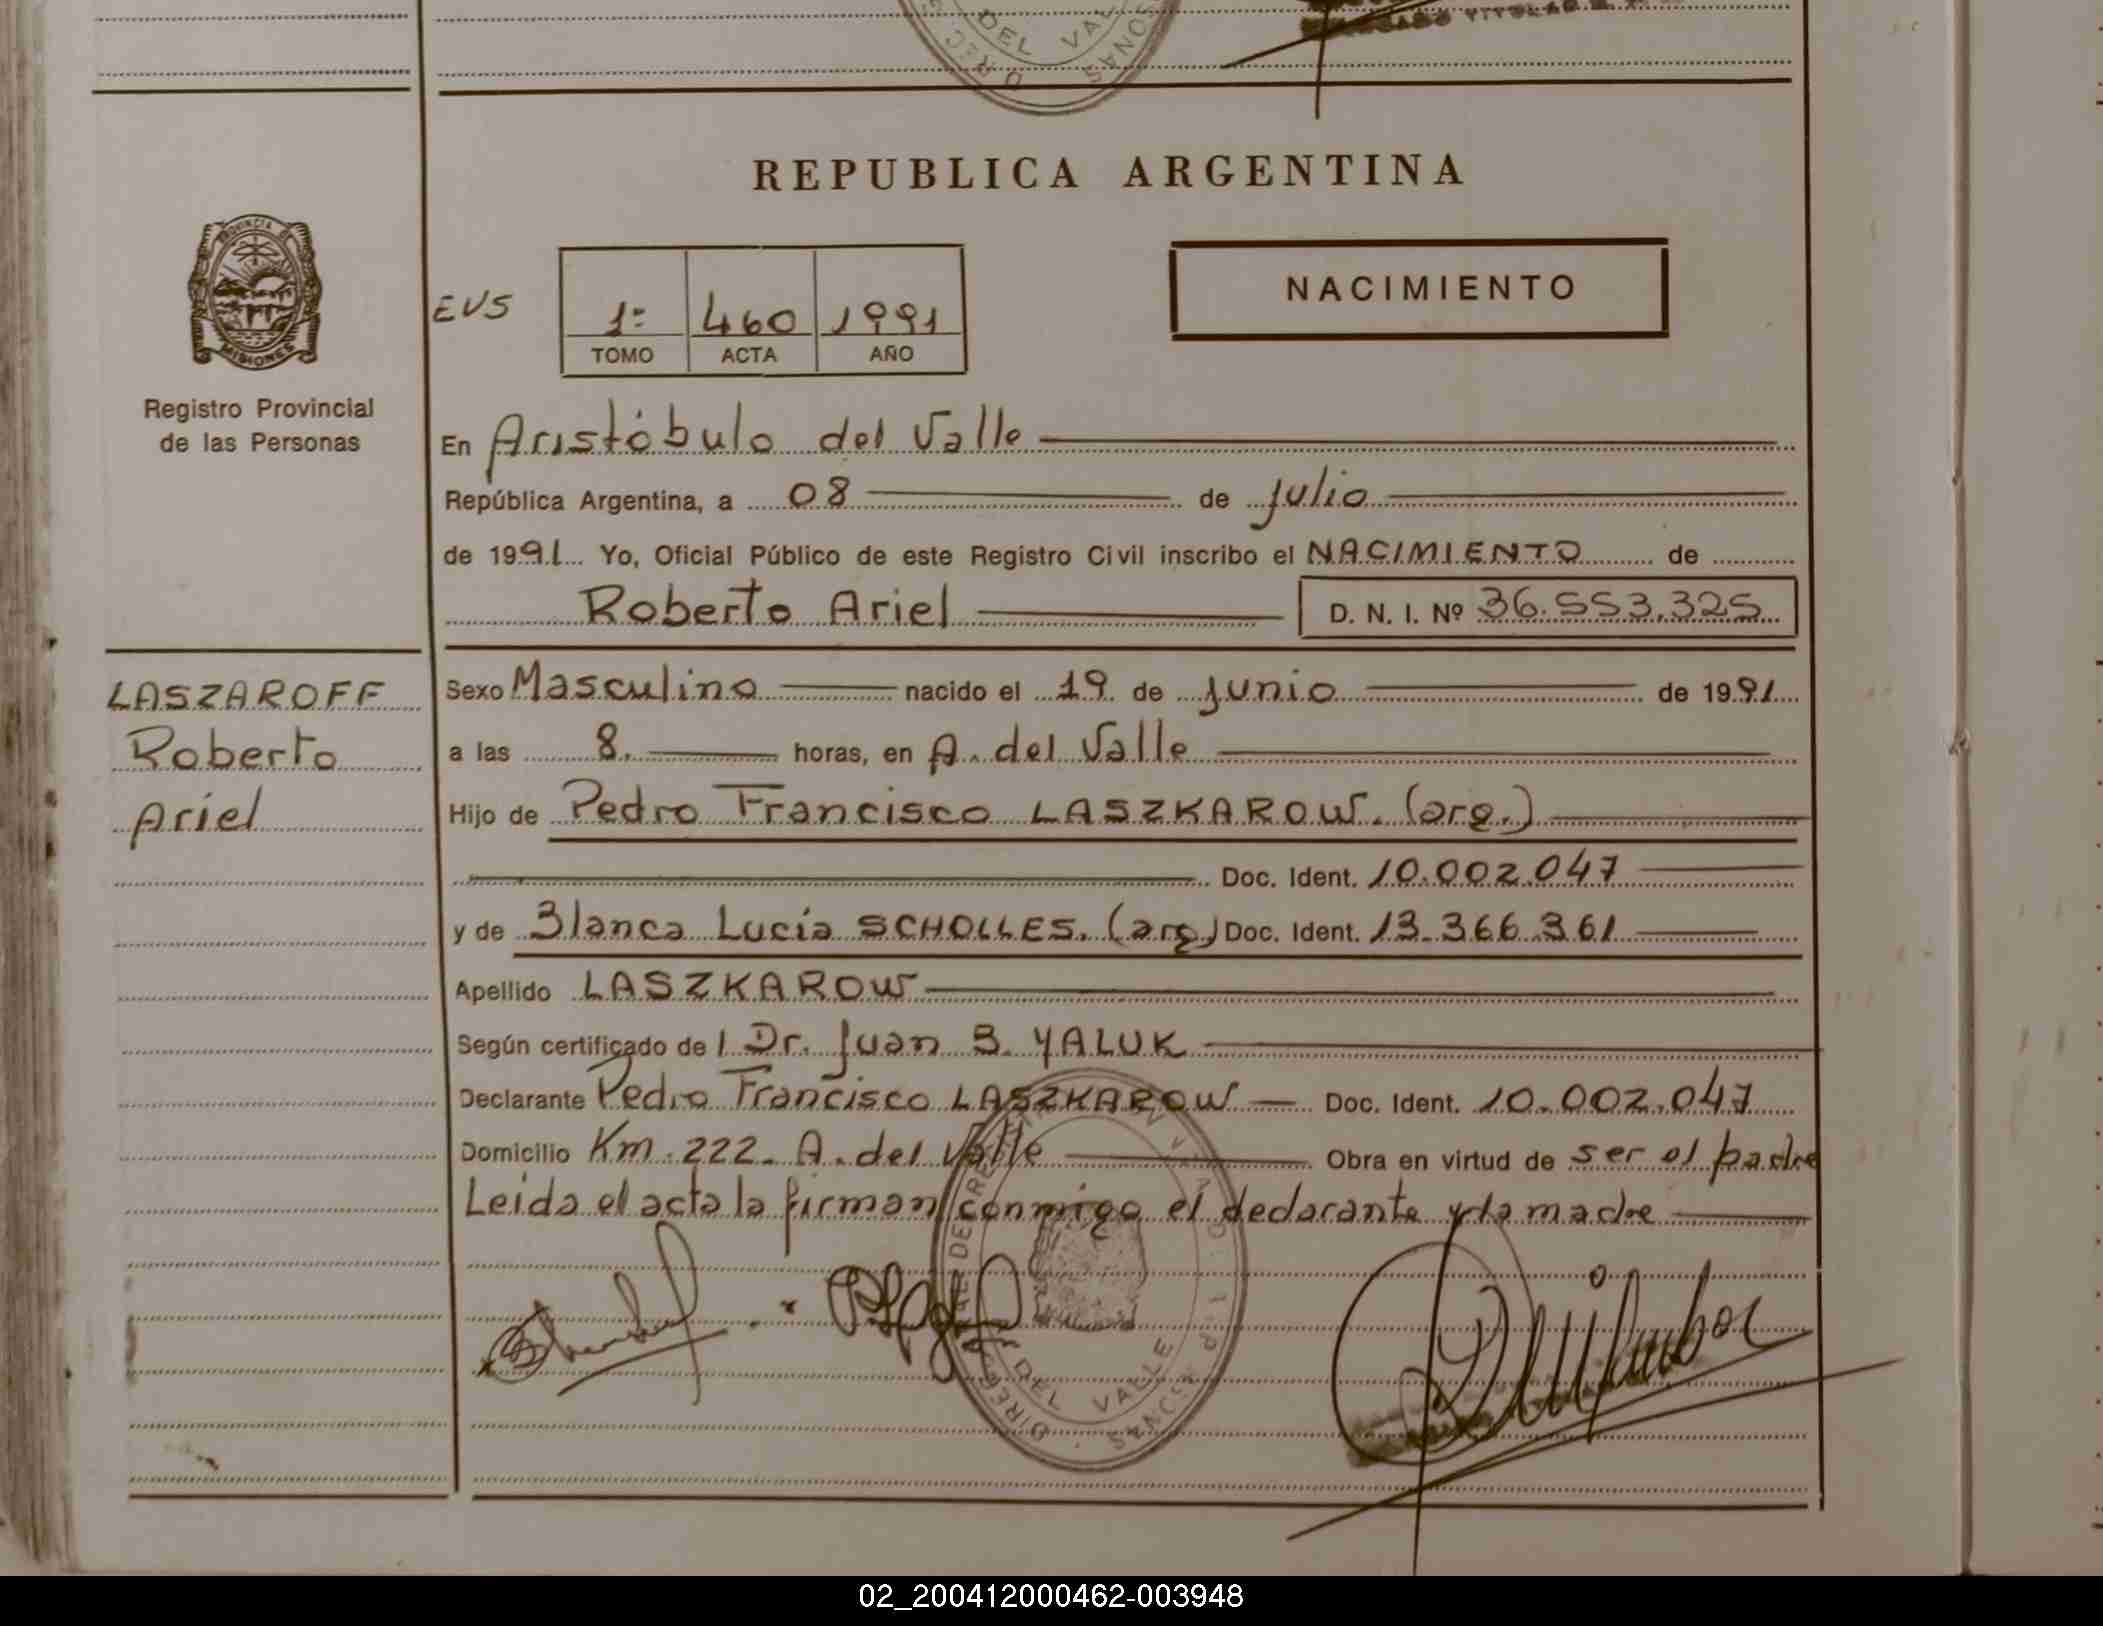 DEL VALLE
REPUBLICA ARGENTINA
PROVINCIA DE
MISIONES
Registro Provincial
de las Personas
EVS
1º 460 1991
TOMO ACTA AÑO
NACIMIENTO
En Aristóbulo del Valle
República Argentina, a 08 de julio
de 1991 Yo, Oficial Público de este Registro Civil inscribo el NACIMIENTO de
Roberto Ariel D. N. I. Nº 36.553.325
LASZAROFF
Roberto
Ariel
Sexo Masculino nacido el 19 de junio de 1991
a las 8. horas, en A. del Valle
Hijo de Pedro Francisco LASZKAROW. (arg.)
Doc. Ident. 10.002.047
y de Blanca Lucía SCHOLLES. (arg) Doc. Ident. 13.366.361
Apellido LASZKAROW
Según certificado de l Dr. Juan B. YALUK
Declarante Pedro Francisco LASZKAROW Doc. Ident. 10.002.047
Domicilio Km. 222. A. del Valle Obra en virtud de ser el padre
Leida el acta la firman conmigo el declarante y la madre
DEL VALLE
02_200412000462-003948